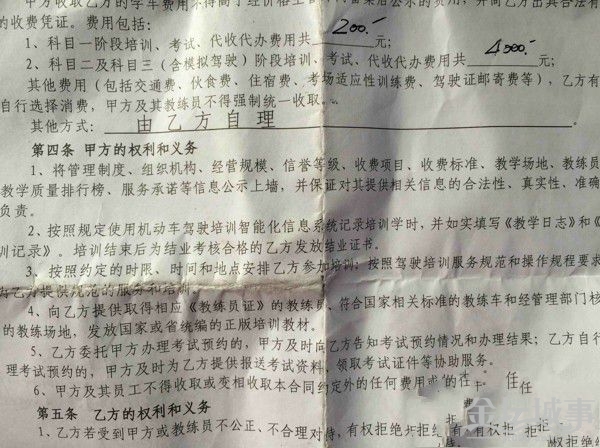 甲方收取乙方的学车费用不得高于
的收费凭证。费用包括：
1、科目一阶段培训、考试、代收代办费用共200.-元；
2、科目二及科目三（含模拟驾驶）阶段培训、考试、代收代办费用共4000.-元；
其他费用（包括交通费、伙食费、住宿费、考场适应性训练费、驾驶证邮寄费等），乙方有
自行选择消费，甲方及其教练员不得强制统一收取。
其他方式：由乙方自理。
第四条 甲方的权利和义务
1、将管理制度、组织机构、经营规模、信誉等级、收费项目、收费标准、教学场地、教练员
教学质量排行榜、服务承诺等信息公示上墙，并保证对其提供相关信息的合法性、真实性、准确
负责。
2、按照规定使用机动车驾驶培训智能化信息系统记录培训学时，并如实填写《教学日志》和《
训记录》。培训结束后为结业考核合格的乙方发放结业证书。
3、按照约定的时限、时间和地点安排乙方参加培训；按照驾驶培训服务规范和操作规程要求
向乙方提供规范的服务和培训。
4、向乙方提供取得相应《教练员证》的教练员、符合国家相关标准的教练车和经管理部门核
的教练场地，发放国家或省统编的正版培训教材。
5、乙方委托甲方办理考试预约的，甲方及时向乙方告知考试预约情况和办理结果；乙方自行
理考试预约的，甲方及时为乙方提供报送考试资料、领取考试证件等协助服务。
6、甲方及其员工不得收取或变相收取本合同约定外的任何费用或
第五条 乙方的权利和义务
1、乙方若受到甲方或教练员不公正、不合理对待，有权拒绝